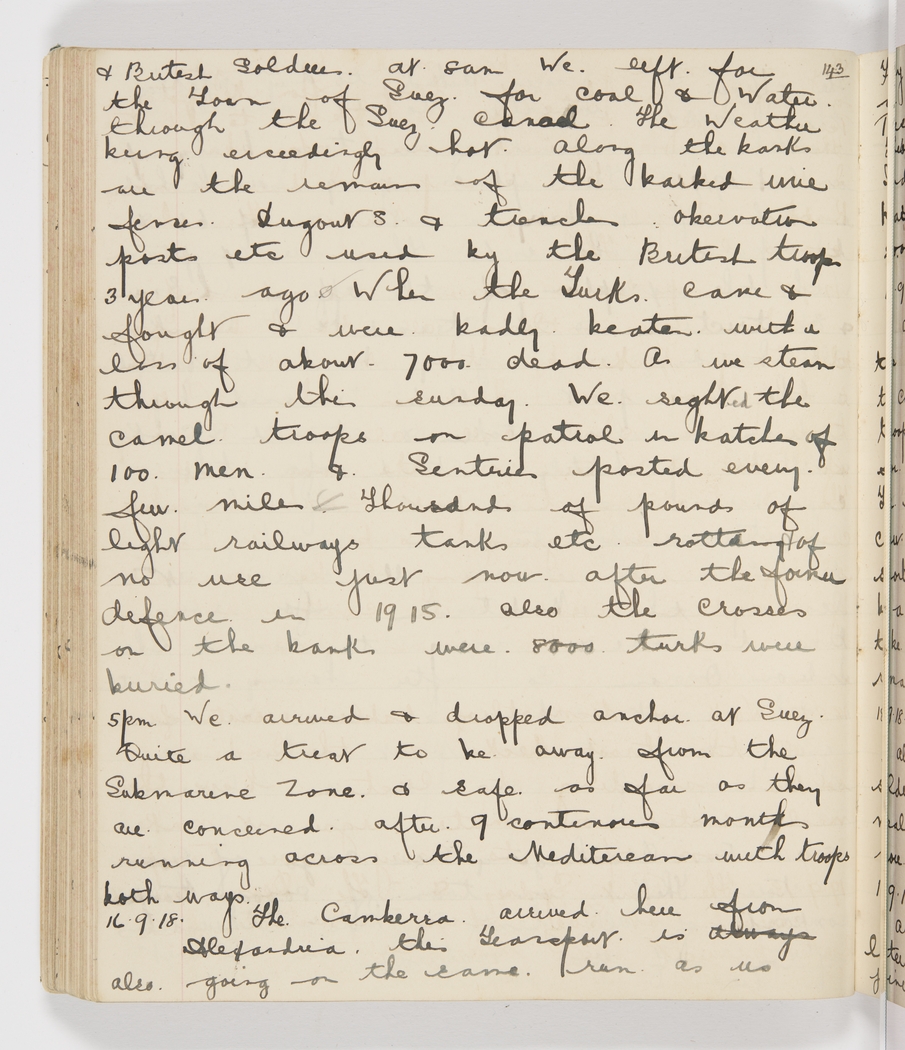 & British Soldiers. at 8am We. left. for 143
the Town of Suez. for coal & Water.
through the Suez. canal. The Weather
being exceedingly hot. along the banks
are the remains of the barbed wire
fenses. Dugouts. & trenches. observation
posts etc used by the British troops
3 years. ago When the Turks. came &
fought & were. badly. beaten. with a
loss of about. 7000. dead. As we steam
through this sunday. We. sighted the
camel. troops on patrol in batches of
100. men. &. Sentries posted every.
few. miles & Thousands of pounds of
light railways tanks etc. rotting of
no use just now. after the former
defence in 1915. also the crosses
on the banks were. 8000. turks were
buried.
5pm We. arrived & dropped anchor. at Suez.
Quite a treat to be. away. from the
Submarine Zone. & safe. as far as they
are. concerned. after. 9 contenous months
running across the Mediterean with troops
both ways.
16.9.18. The. Camberra. arrived. here from
Alexandria. this Transport. is always
also. going on the same. run. as us